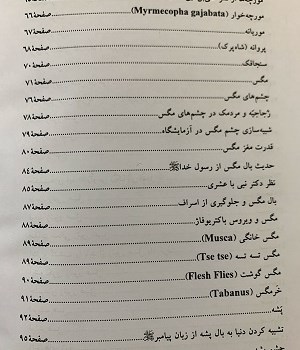 مورچه‌خوار (Myrmecopha gajabata) صفحهٔ ۶۶
موریانه صفحهٔ ۶۷
پروانه (شاه‌پرک) صفحهٔ ۶۸
سنجاقک
مگس صفحهٔ ۷۱
چشم‌های مگس صفحهٔ ۷۶
زجاجیّه و مردمک در چشم‌های مگس صفحهٔ ۷۸
شبیه‌سازی چشم مگس در آزمایشگاه صفحهٔ ۷۹
قدرت مغز مگس صفحهٔ ۸۰
حدیث بال مگس از رسول خداﷺ صفحهٔ ۸۴
نظر دکتر نبی با عشری صفحهٔ ۸۵
بال مگس و جلوگیری از اسراف صفحهٔ ۸۷
مگس و ویروس باکتریوفاژ صفحهٔ ۸۸
مگس خانگی (Musca) صفحهٔ ۸۹
مگس تسه تسه (Tse tse) صفحهٔ ۸۹
مگس گوشت (Flesh Flies) صفحهٔ ۹۰
خرمگس (Tabanus) صفحهٔ ۹۱
پشه صفحهٔ ۹۲
تشبیه کردن دنیا به بال پشه از زبان پیامبرﷺ صفحهٔ ۹۵